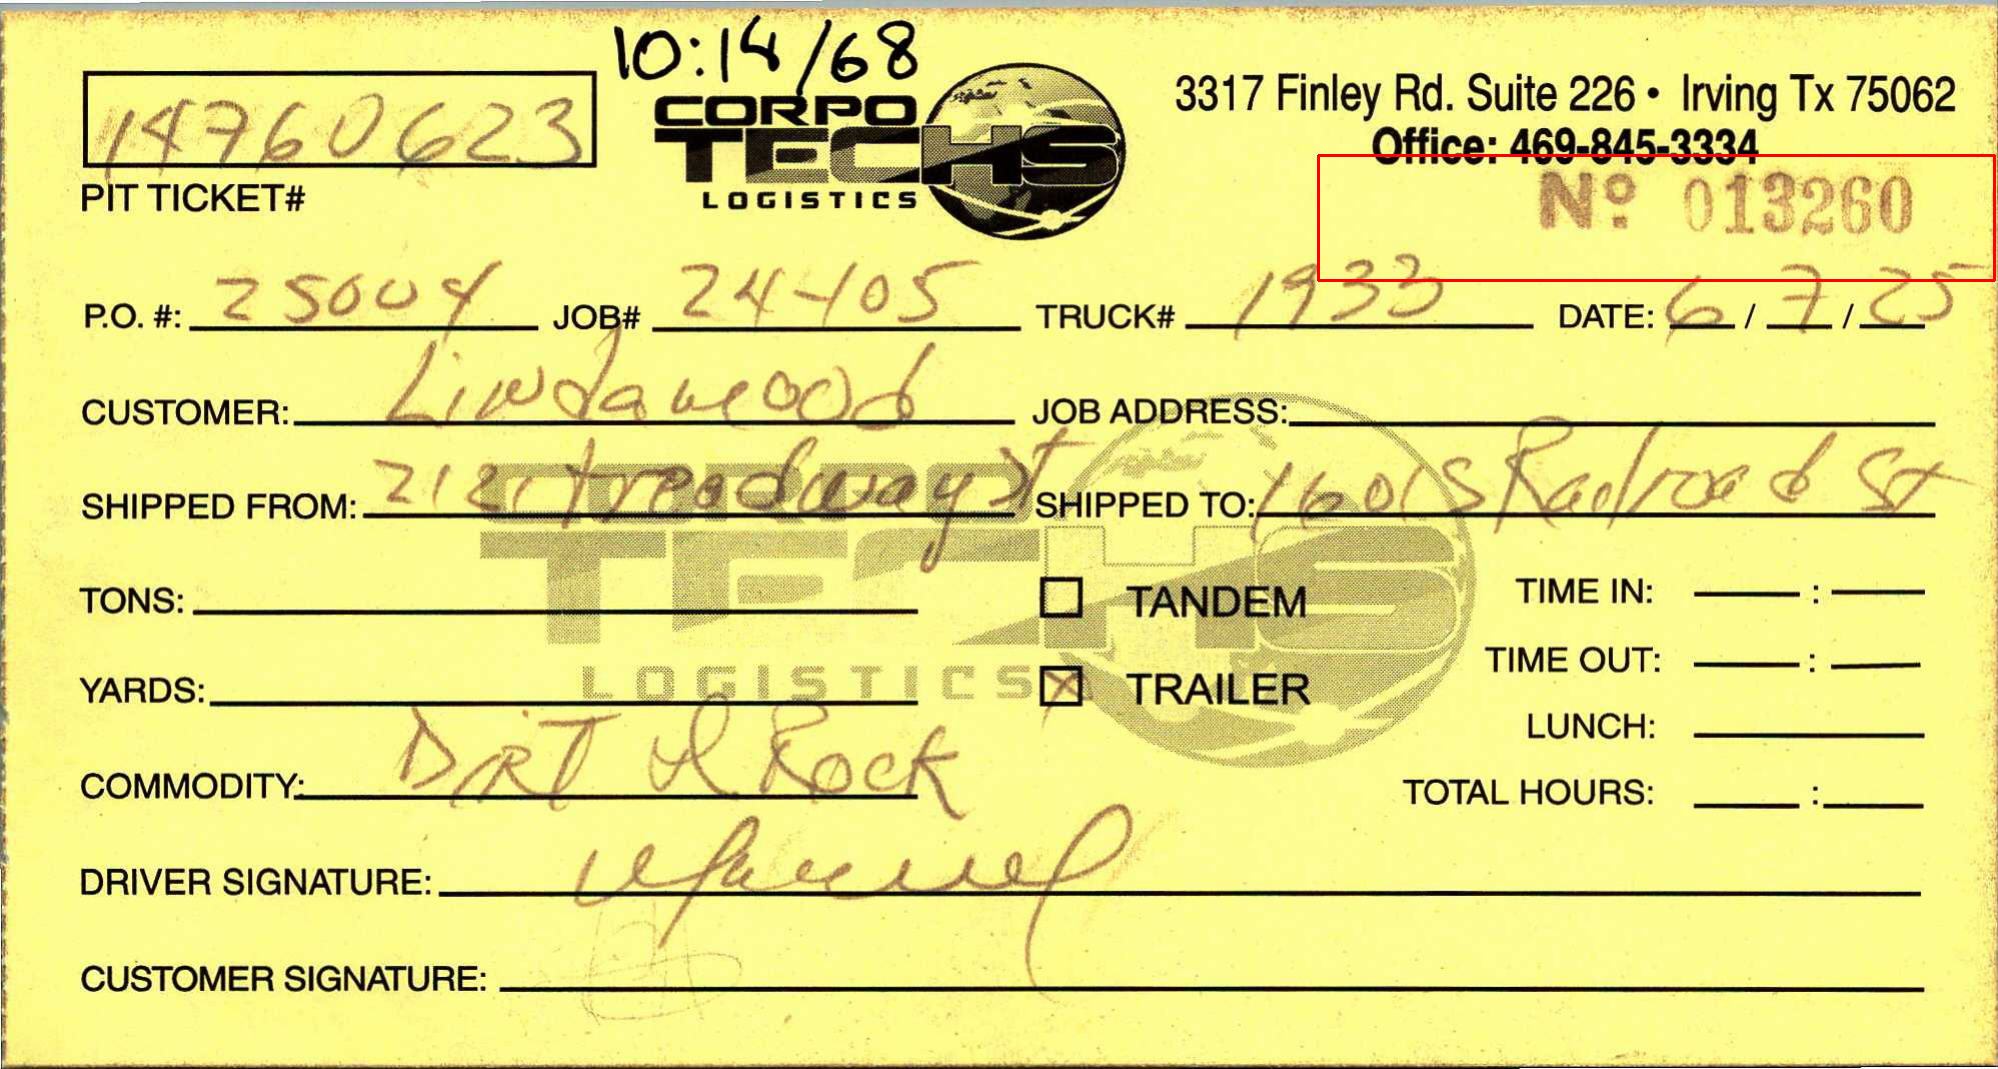 10:14/68
14760623
PIT TICKET#
CORPO
TECHS
LOGISTICS
3317 Finley Rd. Suite 226 • Irving Tx 75062
Office: 469-845-3334
Nº 013260
P.O. #: 25004 JOB# 24-105 TRUCK# 1933 DATE: 6/7/25
CUSTOMER: Lindawood JOB ADDRESS:
SHIPPED FROM: 212 treadway st SHIPPED TO: 1601 S Railroad St
CORPO
TECHS
LOGISTICS
TONS: TANDEM TIME IN: :
YARDS: X TRAILER TIME OUT: :
LUNCH:
COMMODITY: DIRT & Rock TOTAL HOURS: :
DRIVER SIGNATURE: Manuel
CUSTOMER SIGNATURE: